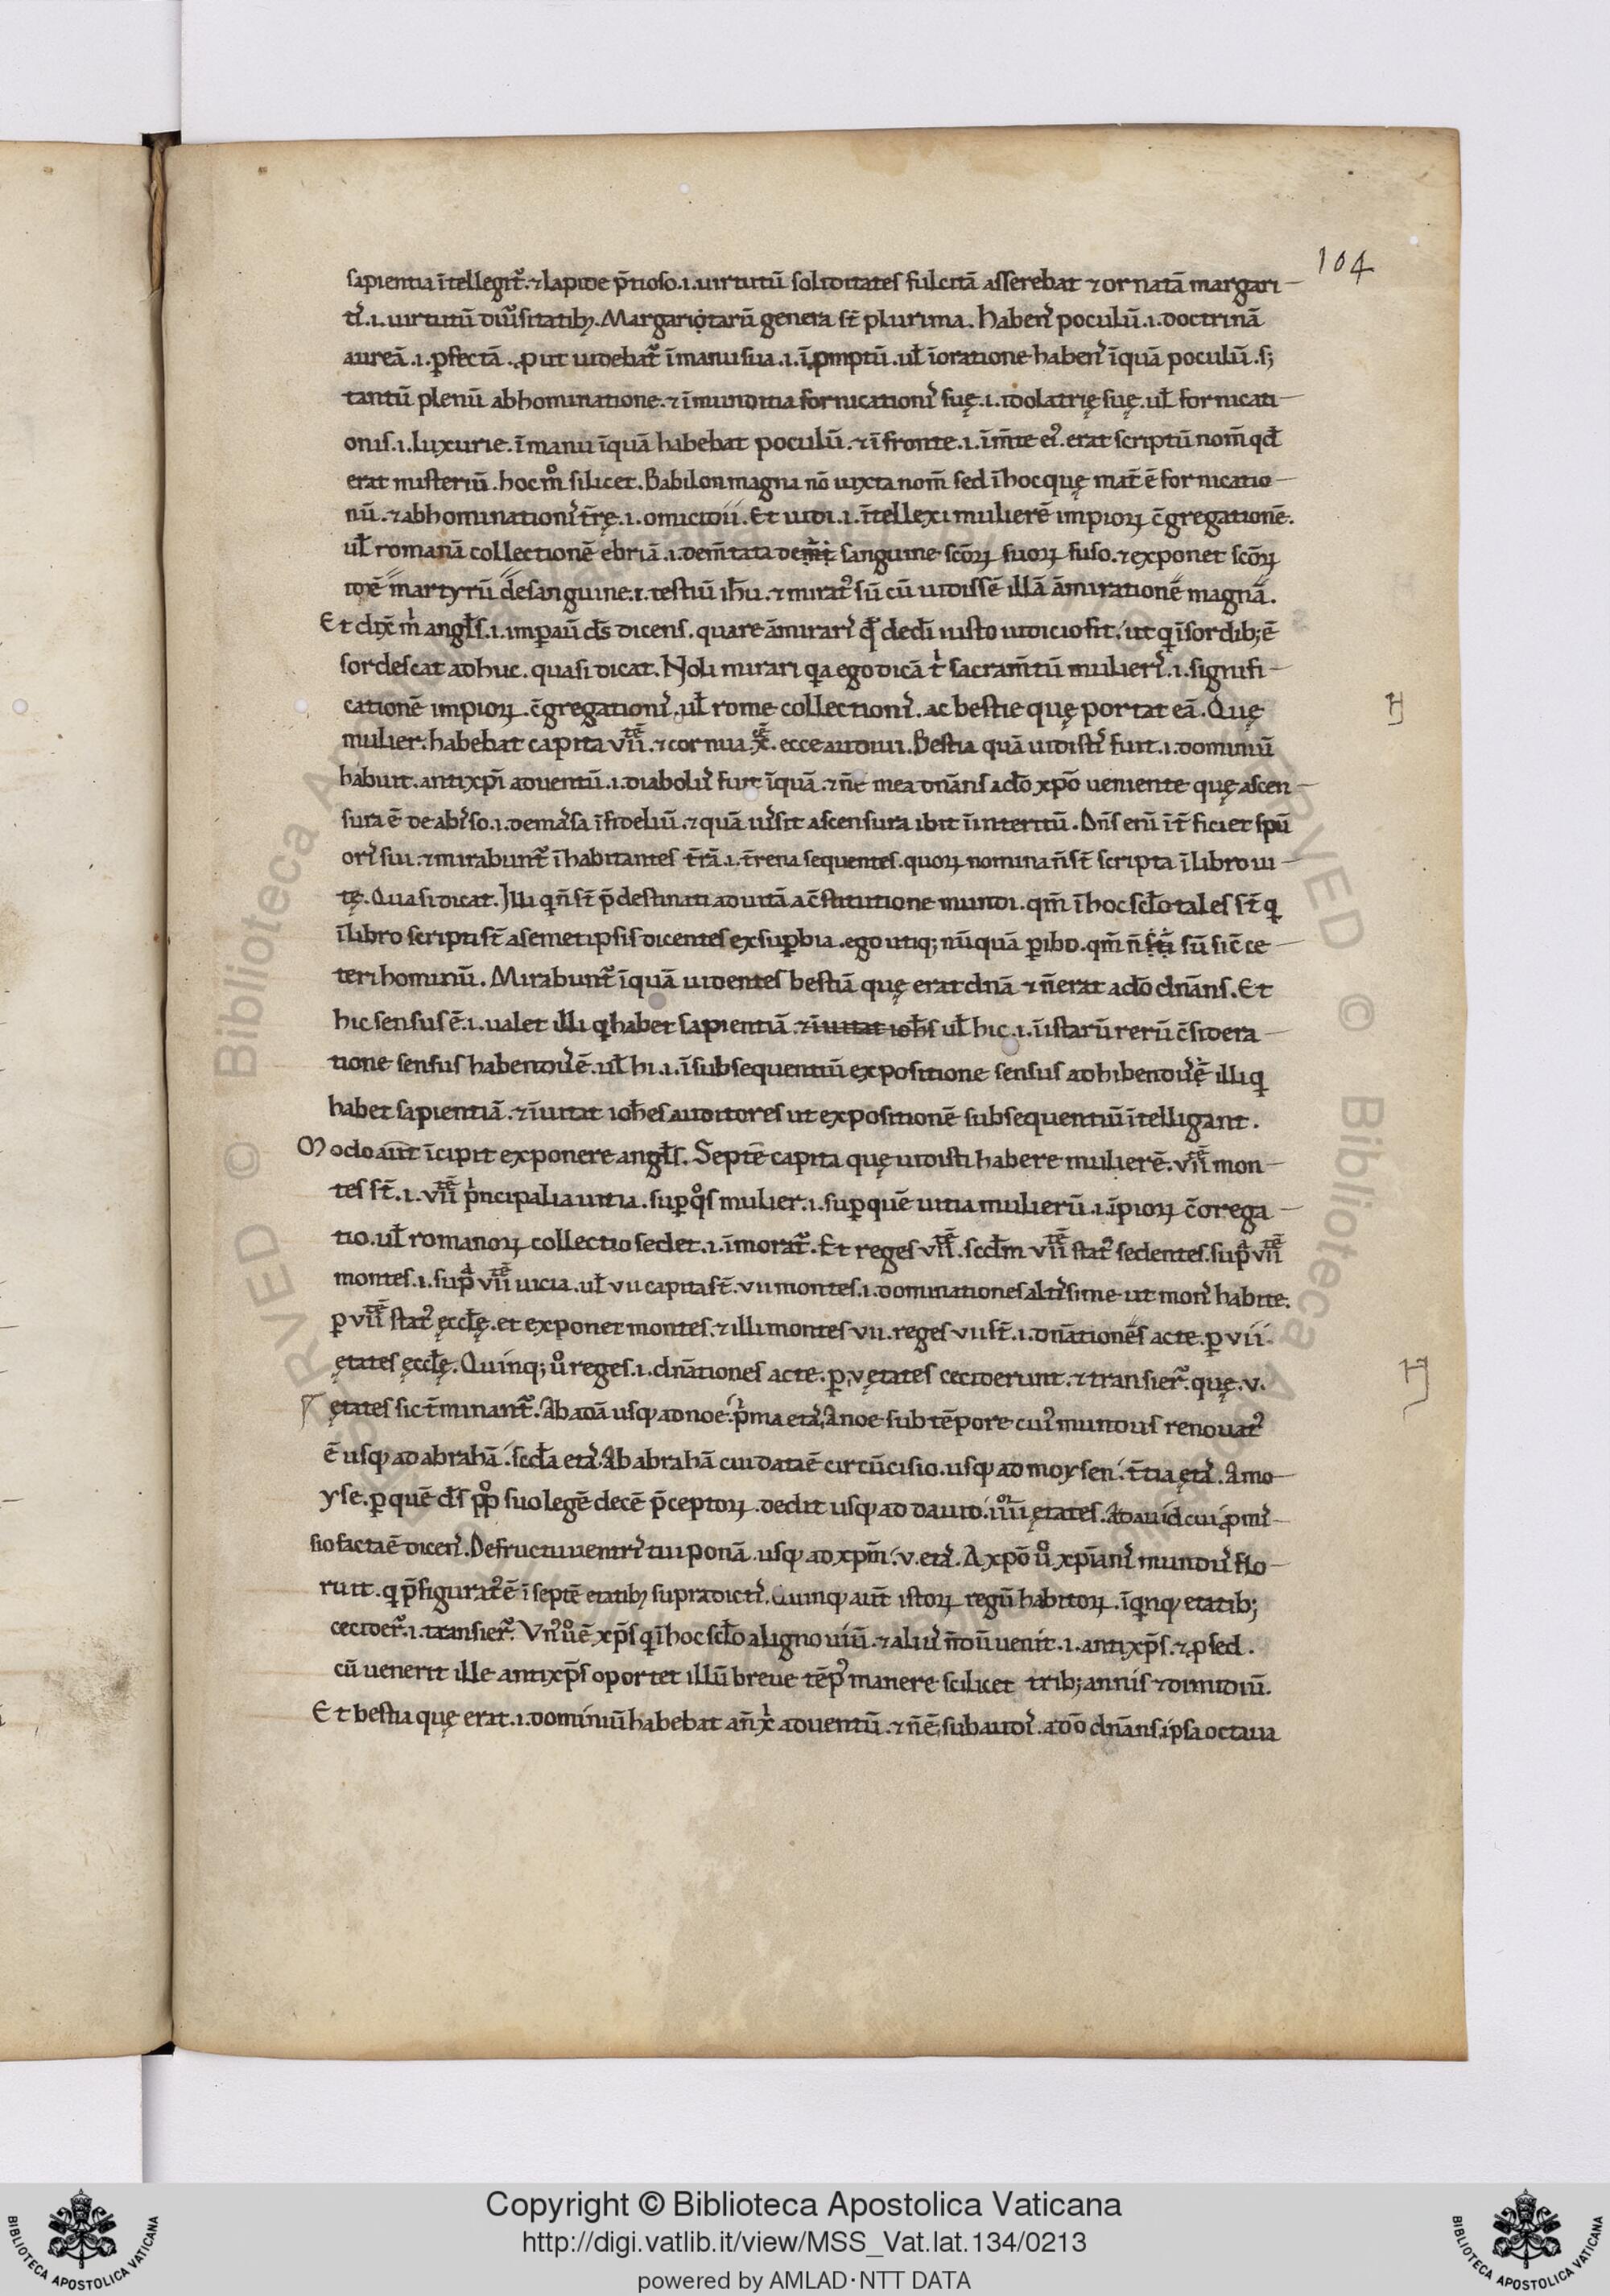 104
sapientia ītellegit᷑. ⁊ lapide p̄tioso .i. uirtutū soliditates fulcitā asserebat ⁊ ornatā margari-
tis .i. uirtutū diu᷑sitatib; Margariotarū genera st̄ plurima. habens poculū .i. doctrinā
aureā .i. ꝑfectā. ꝓut uidebat᷑ ī manu sua .i. ī ꝓmptū. ul̄ ī oratione habens īquā poculū. s;
tantū plenū abhominatione. ⁊ īmunditia fornicationis suę .i. idolatrię suę. ul̄ fornicati-
onis .i. luxurie. ī manu īquā habebat poculū. ⁊ ī fronte .i. ī m̄te ei᷒. erat scriptū nom̄ qd̄
erat misterium. hoc mͦ silicet. Babilon magna nō iuxta nom̄ sed ī hoc quę mat̄ ē fornicatio-
nū. ⁊ abhominationis t̄rę .i. omicidii. Et uidi .i. ītellexi mulierē impioꝝ c̄gregationē.
ul̄ romanā collectionē ebriā .i. dem̄tata sanguine sc̄oꝝ suoꝝ fuso. ⁊ exponet sc̄oꝝ
martyrū de sanguine .i. testiū ih̄u. ⁊ mirat᷒ sū cū uidissē illā āmirationē magnā.
Et dix̄ m̍ angl̄s .i. imꝑaū ds̄ dicens. quare āmiraris iusto iudicio fit. ut q̍ ī sordib; ē
sordescat adhuc. quasi dicat. Noli mirari q̍a ego dicā t̍ sacram̄tū mulieris .i. signifi-
cationē impioꝝ. c̄gregationis. ul̄ rome collectionis. ac bestie quę portat eā. Quę
mulier. habebat capita vii. ⁊ cornua .x. ecce audiui. Bestia quā uidisti fuit .i. dominiū
habuit. antixp̄i aduentū .i. diabolus fuit īquā. ⁊ n̄ē mea dn̄āns adō xp̄o ueniente quę ascen-
sura ē de abisso .i. de massa īfideliū. ⁊ quā ascensura ibit ī interitū. Dn̄s enī īt̄ficiet spū
oris sui. ⁊ mirabunt᷑ īhabitantes t̄rā .i. t̄rena sequentes. quoꝝ nomina n̄ st̄ scripta ī libro ui-
tę. Quasi dicat. Illi q̍ n̄ st̄ p̄destinati ad uitā a c̄stitutione mundi. qm̄ ī hoc scl̄o tales st̄ q̍
ī libro scripti st̄ a semetipsis dicentes ex suꝑbia. ego utiq; nūquā ꝑibo. qm̄ n̄ sū sic̄ ce-
teri hominū. Mirabunt᷑ īquā uidentes bestiā quę erat dn̄ā ⁊ n̄ erat adō dn̄āns. Et
hic sensus ē .i. ualet illi q̍ habet sapientiā. ul̄ hic .i. ī istarū rerū c̄sidera-
tione sensus habendus ē. ul̄ hi .i. ī subsequentiū expositione sensus adhibendus ē illi q̍
habet sapientiā. ⁊ īuitat ioh̄es auditores ut expositionē subsequentiū ītelligant.
Modo aūt īcipit exponere angl̄s. Septē capita quę uidisti habere mulierē. vii mon-
tes st̄ .i. vii p̍ncipalia uitia. suꝑ qͦs mulier .i. suꝑ quē uitia mulierū .i. īpioꝝ c̄grega-
tio. ul̄ romanoꝝ collectio sedet .i. īmorat᷑. Et reges vii. scd̄m vii stat᷒ sedentes. sup̄ vii
montes .i. sup̄ vii uicia. ul̄ vii capita st̄. vii montes .i. dominationes altissime ut mons habite.
ꝑ vii stat᷒ ęccl̄ę. et exponet montes. ⁊ illi montes vii. reges vii st̄ .i. dn̄ātionēs acte. ꝑ vii
ętates ęccl̄ę. Quinq; uͦ reges .i. dn̄ātiones acte. ꝑ v ętates ceciderunt. ⁊ transier᷑. quę .v.
ętates sic t̄minant᷑. Ab adā usq; ad noe p̍ma etas. A noe sub tēpore cui᷒ mundus renouat᷒
ē usq; ad abrahā. scd̄a etas. Ab abrahā cui data ē circūcisio. usq; ad moysen. t̄tia ętas. A mo-
yse. ꝑ quē ds̄ pp̊ suo legē decē p̄ceptoꝝ. dedit usq; ad dauid. iiii ętates. A dauid cui ꝓmis-
sio facta ē dicens. De fructu uentris tui ponā. usq; ad xp̄m. v. etas. A xp̄o uͦ xp̄ianis mundus flo-
ruit. q̍ p̄figurat᷒ ē ī septē etatib; supradictis. Quinq; aūt istoꝝ regū habitoꝝ. ī q̍nq; etatib;
cecider᷑ .i. transier᷑. Vn᷒ uͦ ē xp̄s q̍ ī hoc scl̄o a ligno uiū. ⁊ alius n̄dū uenit .i. antixp̄s. ⁊ ꝓsed.
cū uenerit ille antixp̄s oportet illū breue tēp᷒ manere scilicet trib; annis ⁊ dimidiū.
Et bestia quę erat .i. dominiū habebat an̄ x̍ aduentū. ⁊ n̄ē, subaudis. adō dn̄āns, ipsa octaua
Copyright © Biblioteca Apostolica Vaticana
http://digi.vatlib.it/view/MSS_Vat.lat.134/0213
powered by AMLAD·NTT DATA
BIBLIOTECA APOSTOLICA VATICANA
BIBLIOTECA APOSTOLICA VATICANA